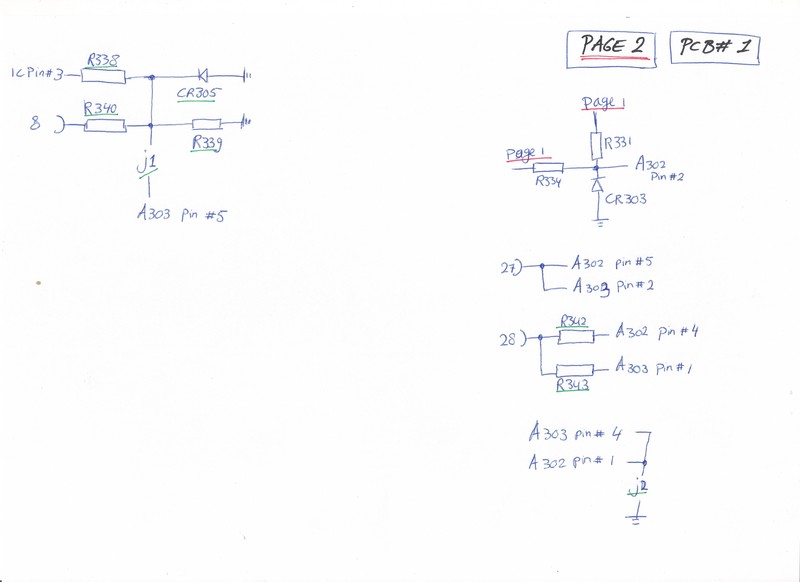 PAGE 2
PCB# 1
R338
IC Pin#3
CR305
R340
8
R339
j1
A303 Pin #5
Page 1
R331
Page 1
A302
Pin #2
R334
CR303
27) A302 Pin #5
A303 Pin #2
R342
28) A302 Pin #4
A303 Pin #1
R343
A303 Pin # 4
A302 Pin # 1
j2